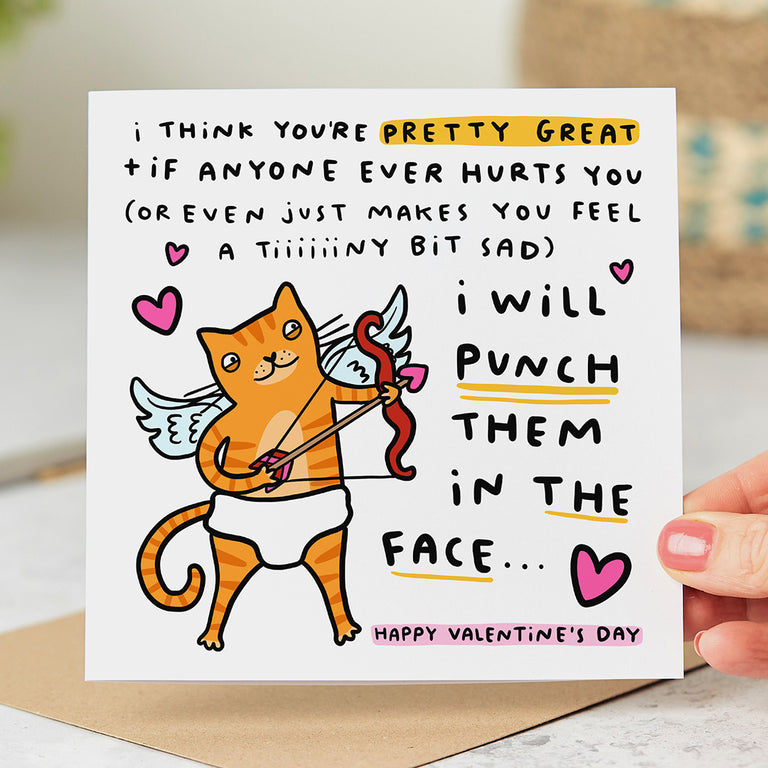 i THiNK YOU'RE PRETTY GREAT
+ iF ANYONE EVER HURTS YOU
(OR EVEN jUST MAKES YOU FEEL
A TiiiiiiNY BiT SAD)
i WiLL
PUNCH
THEM
iN THE
FACE...
HAPPY VALENTiNE'S DAY